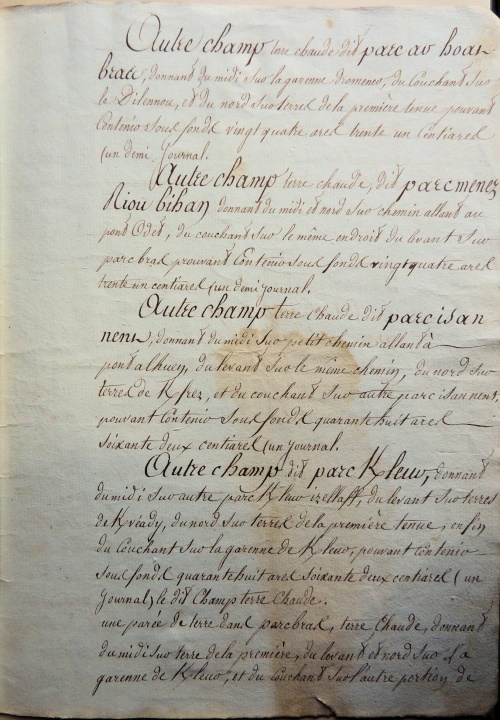 Autre champ terre chaude dit parc ar hoat
bras, donnant du midi sur la garenne dromener, du couchant sur
le Dilennou, et du nord sur terres de la première tenue pouvant
Contenir sous fonds vingt quatre ares trente un Centiares
(un demi Journal.
Autre champ terre chaude, dit parc menez
Riou bihan donnant du midi et nord sur chemin allant au
pont Odet, du couchant sur le même endroit du levant sur
parc bras pouvant Contenir sous fonds vingt quatre ares
trente un centiares (un demi journal.
Autre champ terre Chaude dit parc isan
nent, donnant du midi sur petit chemin allant à
pont alhuey, du levant sur le même chemin, du nord sur
terres de K frez, et du couchant sur autre parc isan nent,
pouvant Contenir sous fonds quarante huit ares
soixante deux centiares (un journal.
Autre champ dit parc K leuv, donnant
du midi sur autre parc K leuv izellaff, du levant sur terres
de K véady, du nord sur terres de la première tenue, enfin
du Couchant sur la garenne de K leuv, pouvant contenir
sous fonds quarante huit ares soixante deux centiares (un
Journal) le dit Champ terre Chaude.
une parée de terre dans parc bras, terre Chaude, donnant
du midi sur terre de la première, du levant et nord sur la
garenne de K leuv, et du Couchant sur l'autre portion de